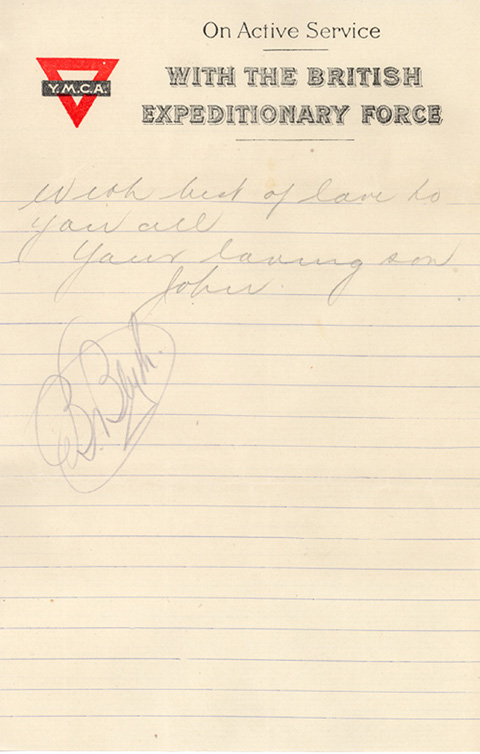 On Active Service
WITH THE BRITISH
EXPEDITIONARY FORCE
Y.M.C.A.
With best of love to
you all
Your loving son
John